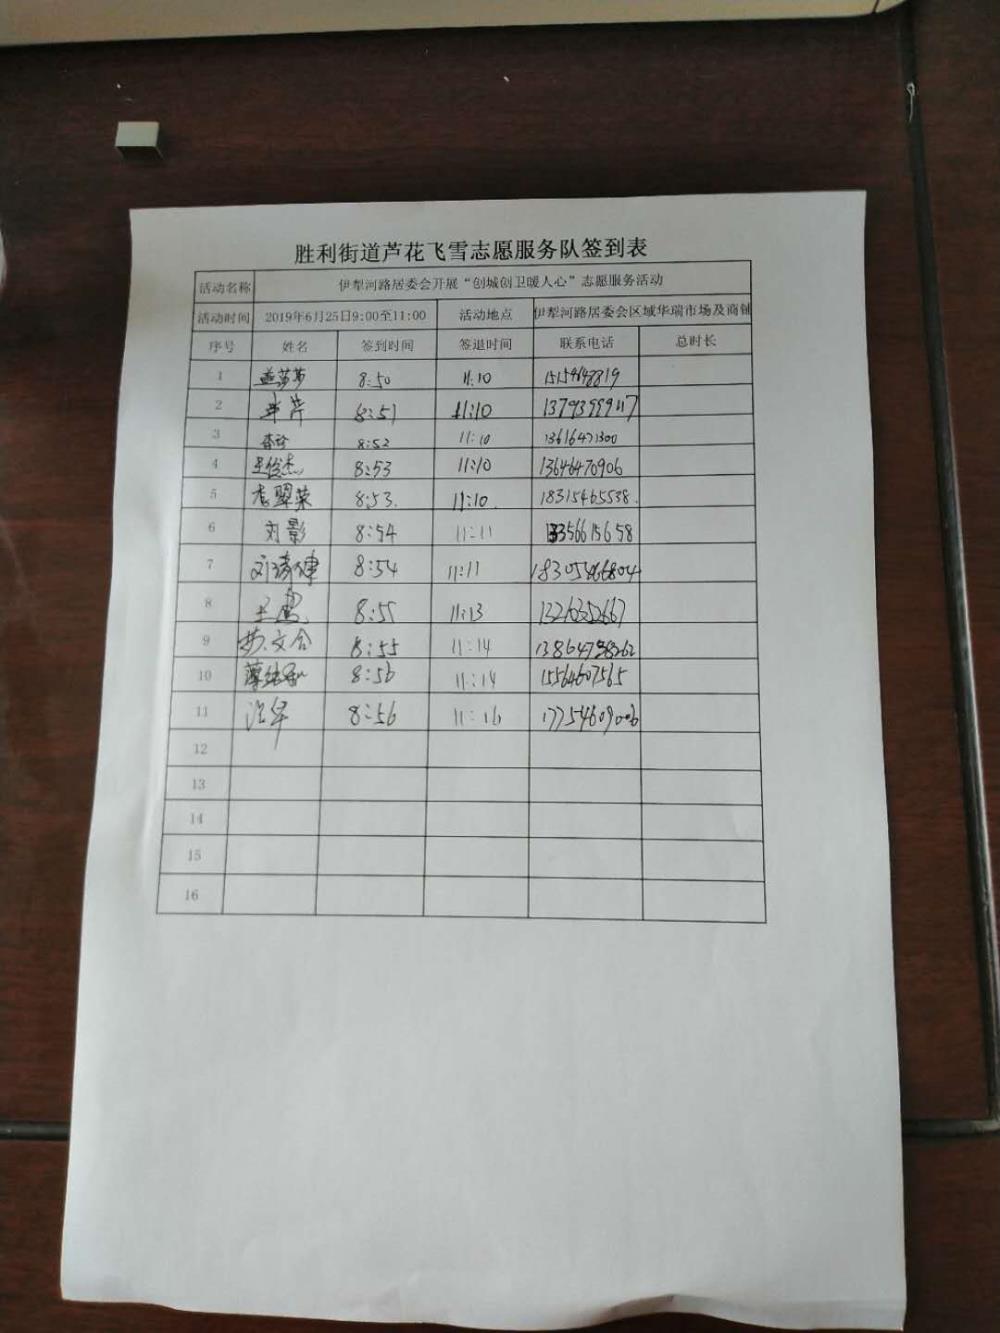 胜利街道芦花飞雪志愿服务队签到表
活动名称 伊犁河路居委会开展“创城创卫暖人心”志愿服务活动
活动时间 2019年6月25日9:00至11:00 活动地点 伊犁河路居委会区域华瑞市场及商铺
序号 姓名 签到时间 签退时间 联系电话 总时长
1 8:50 11:10
2 8:51 11:10
3 8:52 11:10 13616471300
4 王俊杰 8:53 11:10 13646470906
5 李翠荣 8:53. 11:10. 18315465538.
6 刘影 8:54 11:11 13356615658
7 8:54 11:11
8 8:55 11:13
9 苏文合 8:55 11:14
10 8:56 11:14 15564607565
11 8:56 11:16 17754609006
12
13
14
15
16